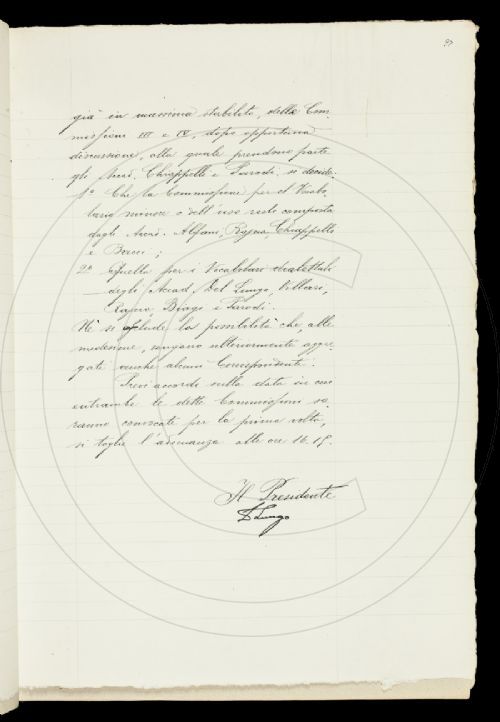 97
già in massima stabilito, delle Com-
missioni III e IV, dopo opportuna
discussione, alla quale prendono parte
gli Accad. Chiappelli e Parodi, si decide:
1º Che la Commissione per il Vocabo-
lario minore o dell'uso resti composta
dagli Accad. Alfani, Rajna, Chiappelli
e Bacci;
2º Quella per i Vocabolari dialettali
degli Accad. Del Lungo, Villari,
Rajna, Biagi e Parodi.
Nè si esclude la possibilità che, alle
medesime, vengano ulteriormente aggre-
gati anche alcuni Corrispondenti.
Presi accordi sulla data in cui
entrambe le dette Commissioni sa-
ranno convocate per la prima volta,
si toglie l'adunanza alle ore 16.15.
Il Presidente
D Lungo
C